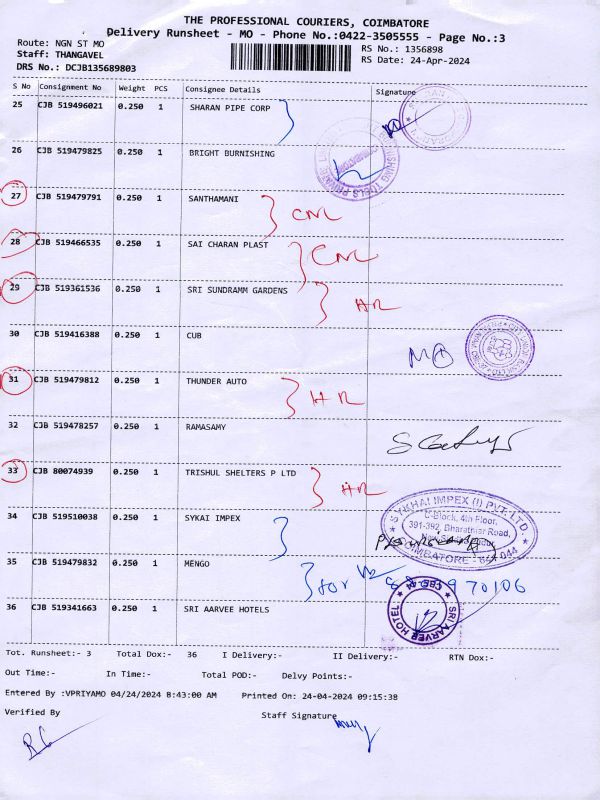 THE PROFESSIONAL COURIERS, COIMBATORE
Delivery Runsheet - MO - Phone No.:0422-3505555 - Page No.:3
Route: NGN ST MO
RS No.: 1356898
Staff: THANGAVEL
RS Date: 24-Apr-2024
DRS No.: DCJB135689803
S No Consignment No Weight PCS Consignee Details Signature
25 CJB 519496021 0.250 1 SHARAN PIPE CORP
26 CJB 519479825 0.250 1 BRIGHT BURNISHING
27 CJB 519479791 0.250 1 SANTHAMANI CNL
28 CJB 519466535 0.250 1 SAI CHARAN PLAST CNL
29 CJB 519361536 0.250 1 SRI SUNDRAMM GARDENS HR
30 CJB 519416388 0.250 1 CUB
31 CJB 519479812 0.250 1 THUNDER AUTO HR
32 CJB 519478257 0.250 1 RAMASAMY
33 CJB 80074939 0.250 1 TRISHUL SHELTERS P LTD HR
34 CJB 519510038 0.250 1 SYKAI IMPEX
SYKHAI IMPEX (I) PVT. LTD.
C-Block, 4th Floor,
391-392, Bharathiar Road,
COIMBATORE - 641 044
35 CJB 519479832 0.250 1 MENGO for
970106
36 CJB 519341663 0.250 1 SRI AARVEE HOTELS
SRI AARVEE HOTEL
CBE-04
Tot. Runsheet:- 3 Total Dox:- 36 I Delivery:- II Delivery:- RTN Dox:-
Out Time:- In Time:- Total POD:- Delvy Points:-
Entered By :VPRIYAMO 04/24/2024 8:43:00 AM Printed On: 24-04-2024 09:15:38
Verified By Staff Signature